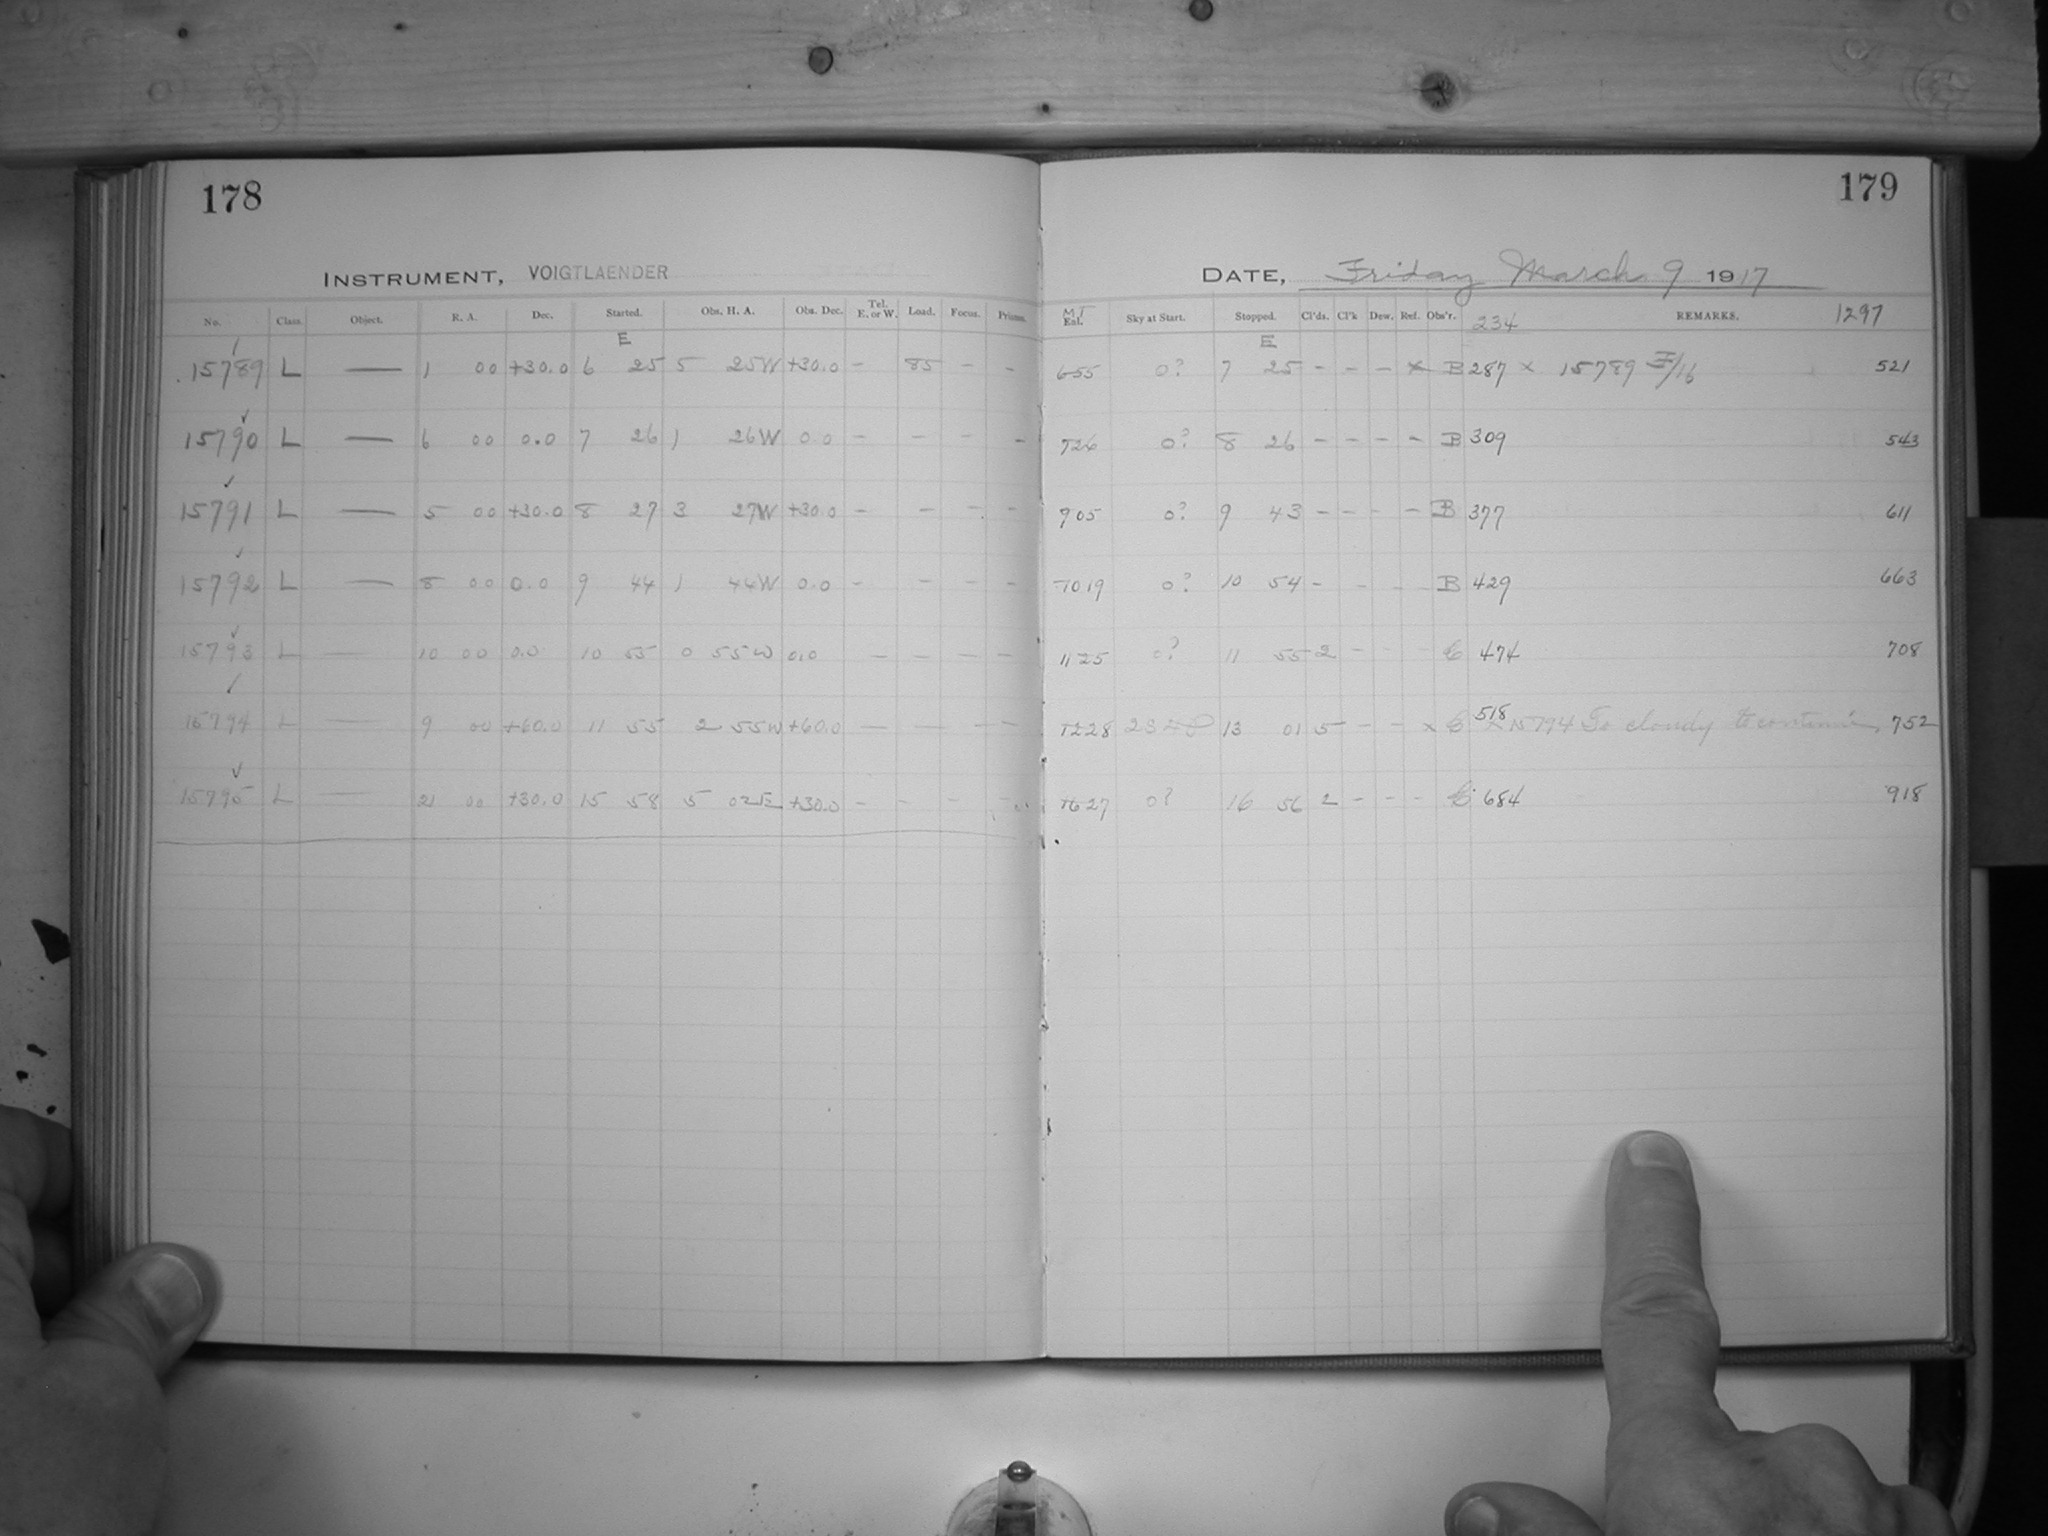 178
179
INSTRUMENT, VOIGTLAENDER
DATE, Friday March 9 1917
No. Class. Object. R. A. Dec. Started. Obs. H. A. Obs. Dec. Tel. E. or W. Load. Focus. Prisms. MT Enl. Sky at Start. Stopped. Cl'ds. Cl'k Dew. Ref. Obs'r. 234 REMARKS. 1297
E E
15789 L — 1 00 +30.0 6 25 5 25W +30.0 - 85 - - 655 0? 7 25 - - - x B 287 x 15789 F/16 521
15790 L — 6 00 0.0 7 26 1 26W 0.0 - - - - 726 0? 8 26 - - - - B 309 543
15791 L — 5 00 +30.0 8 27 3 27W +30.0 - - - - 905 0? 9 43 - - - - B 377 611
15792 L — 8 00 0.0 9 44 1 44W 0.0 - - - - 1019 0? 10 54 - - - - B 429 663
15793 L — 10 00 0.0 10 55 0 55W 0.0 - - - - 1125 0? 11 55 2 - - - C 474 708
15794 L — 9 00 +60.0 11 55 2 55W +60.0 - - - - 1228 13 01 5 - - x C 518 x 15794 To cloudy to continue 752
15795 L — 21 00 +30.0 15 58 5 02E +30.0 - - - 1627 0? 16 56 2 - - - C 684 918